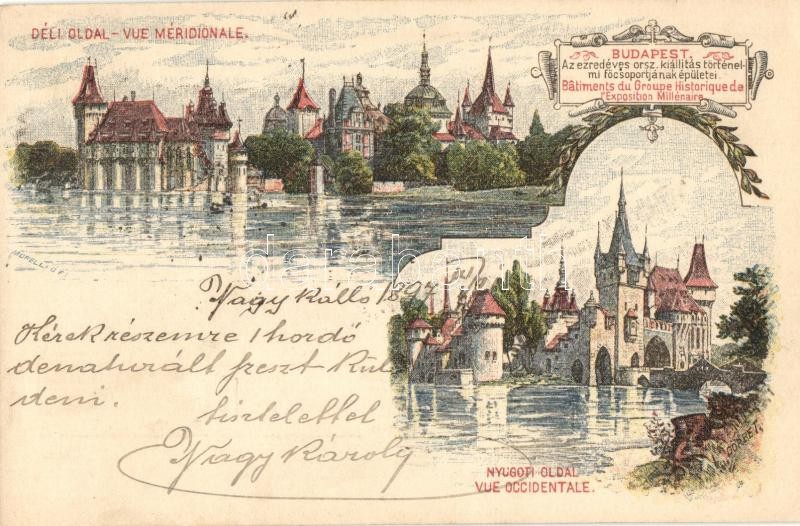 DÉLI OLDAL - VUE MÉRIDIONALE.
BUDAPEST.
Az ezredéves orsz. kiállitás történel-
mi főcsoportjának épületei.
Bâtiments du Groupe Historique de
l'Exposition Millénaire.
MORELLI G. F.
darabanth
Nagy Kálló 1897
Kérek részemre 1 hordó
denaturált szeszt kül
deni.
tisztelettel
Nagy Károly
NYUGOTI OLDAL
VUE OCCIDENTALE.